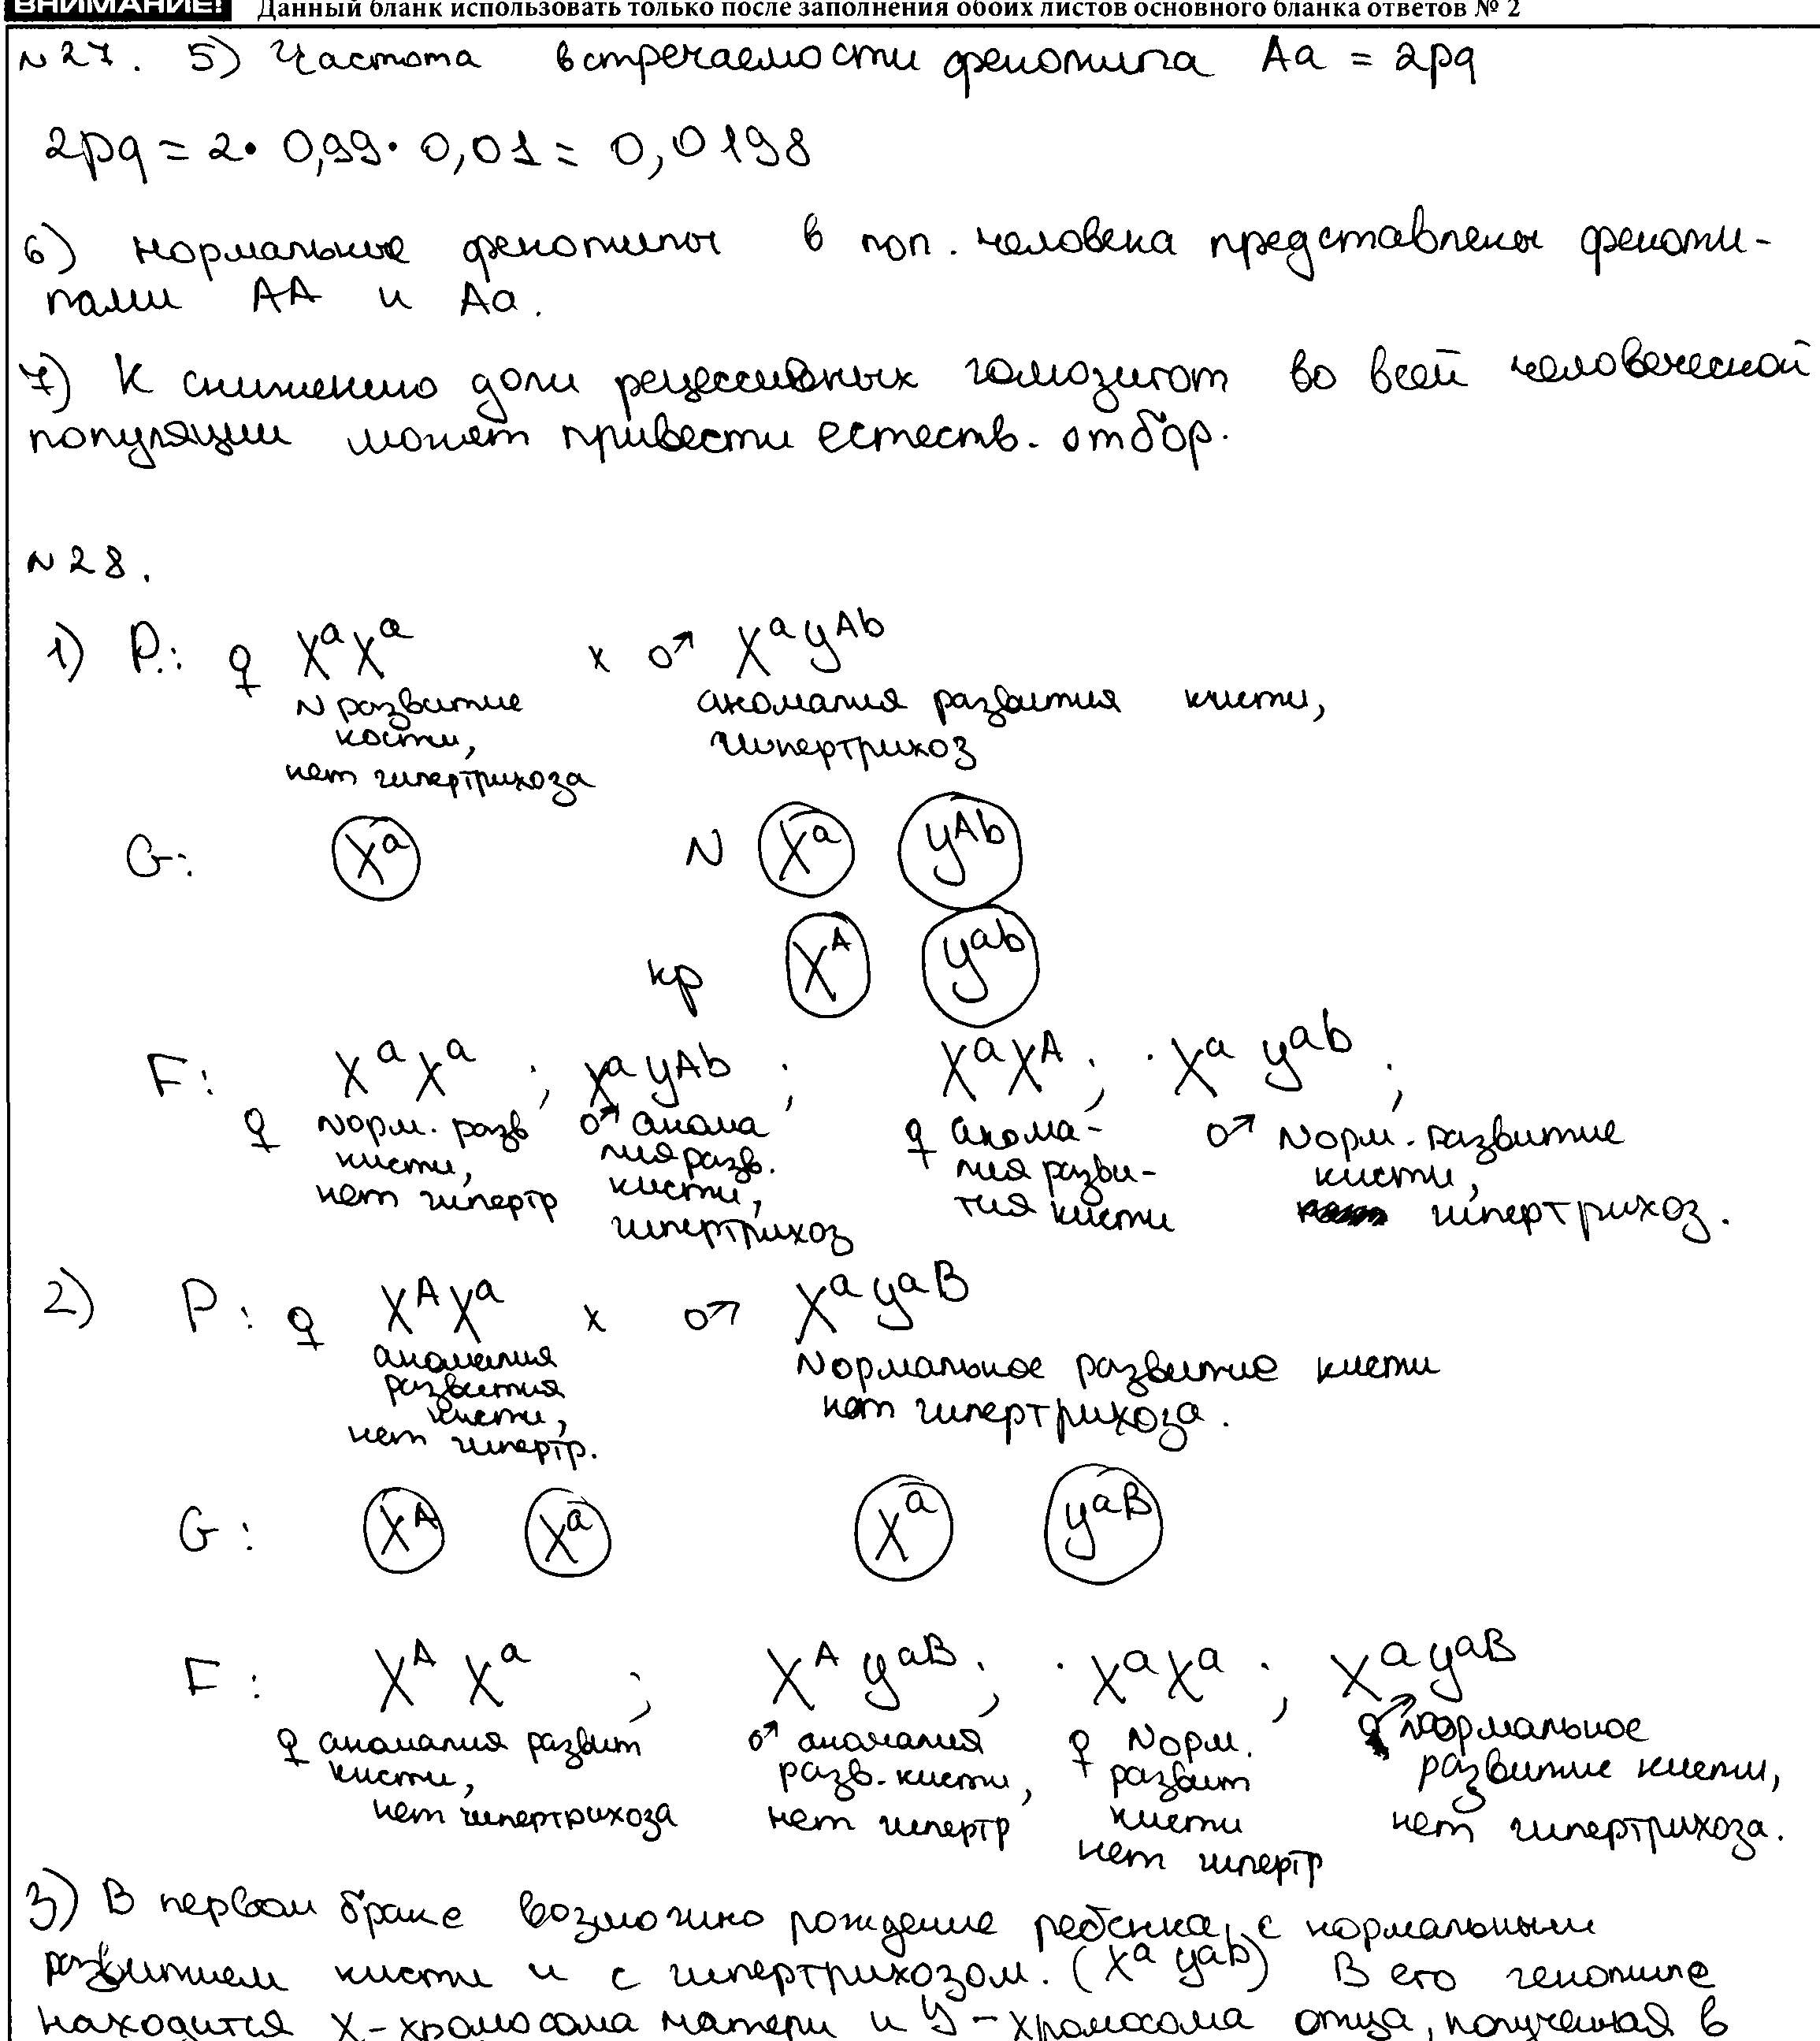 ВНИМАНИЕ! Данный бланк использовать только после заполнения обоих листов основного бланка ответов № 2
№27. 5) Частота встречаемости фенотипа Aa = 2pq
2pq = 2• 0,99• 0,01 = 0,0198
6) нормальные фенотипы в поп. человека представлены феноти-
пами AA и Aa.
7) К снижению доли рецессивных гомозигот во всей человеческой
популяции может привести естеств. отбор.
№28.
1) P.: ♀ XᵃXᵃ x ♂ XᵃyAb
N развитие кости, нет гипертрихоза
аномалия развития кисти, гипертрихоз
G: Xᵃ N Xᵃ yAb
кр Xᴬ yab
F: XᵃXᵃ ; XᵃyAb ; XᵃXᴬ ; Xᵃ yab ;
♀ Nорм. разв кисти, нет гипертр
♂ анома лия разв. кисти, гипертрихоз
♀ анома- лия разви- тия кисти
♂ Nорм. развитие кисти, гипертрихоз.
2) P: ♀ XᴬXᵃ x ♂ XᵃyaB
аномалия развития кисти, нет гипертр.
Nормальное развитие кисти нет гипертрихоза.
G: Xᴬ Xᵃ Xᵃ yaB
F: Xᴬ Xᵃ ; Xᴬ yaB ; XᵃXᵃ ; XᵃyaB
♀ аномалия развит кисти, нет гипертрихоза
♂ аномалия разв. кисти, нет гипертр
♀ Nорм. развит кисти нет гипертр
♂ Nормальное развитие кисти, нет гипертрихоза.
3) В первом браке возможно рождение ребенка, с нормальным
развитием кисти и с гипертрихозом. (Xᵃ yab) В его генотипе
находится X-хромосома матери и y-хромосома отца, полученная в